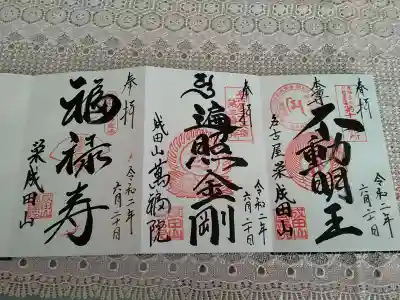 奉拝
本尊
不動明王
名古屋栄成田山
令和二年
六月二十日
奉拝
遍照金剛
成田山萬福院
令和二年
六月二十日
奉拝
福禄寿
栄成田山
令和二年
六月二十日